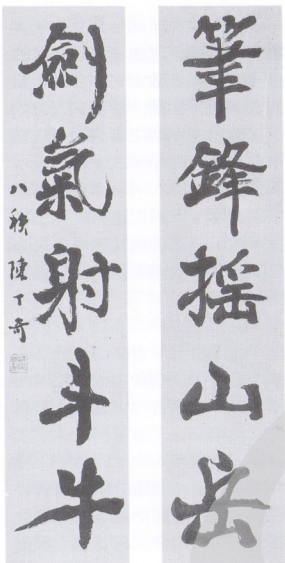 筆鋒搖山岳
劍氣射斗牛
八秩 陳丁奇